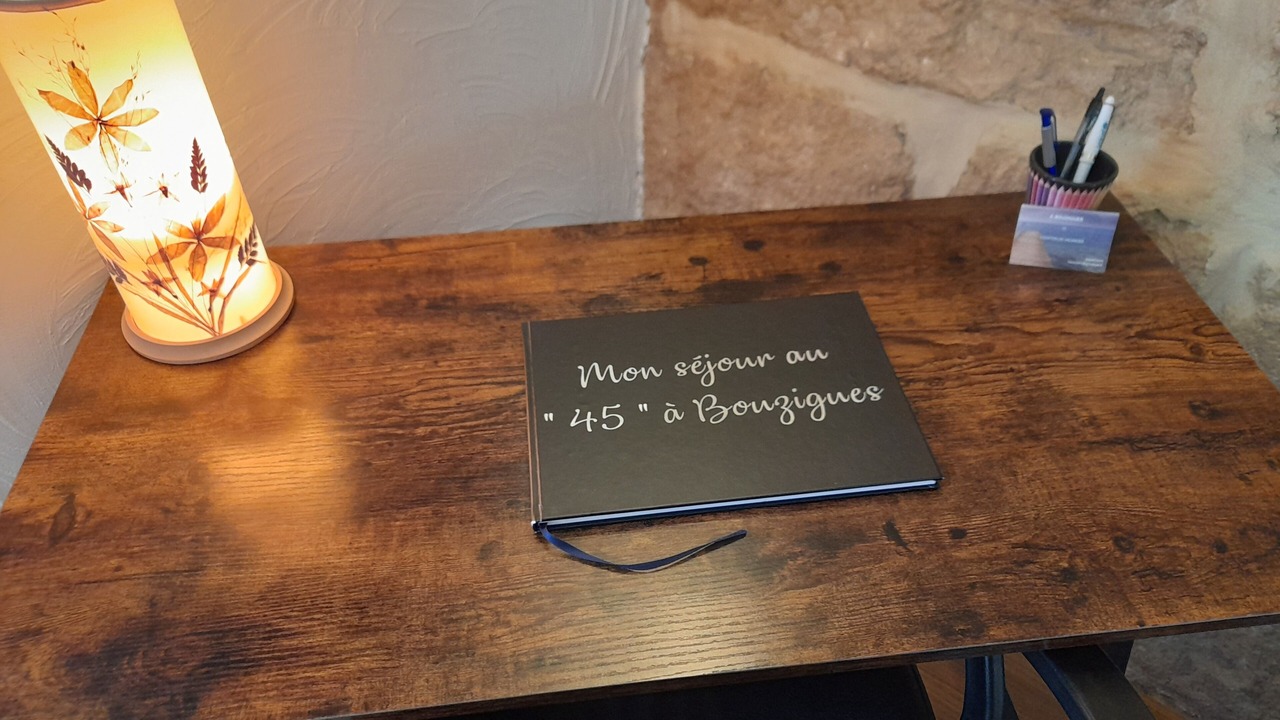 Mon séjour au
" 45 " à Bouzigues